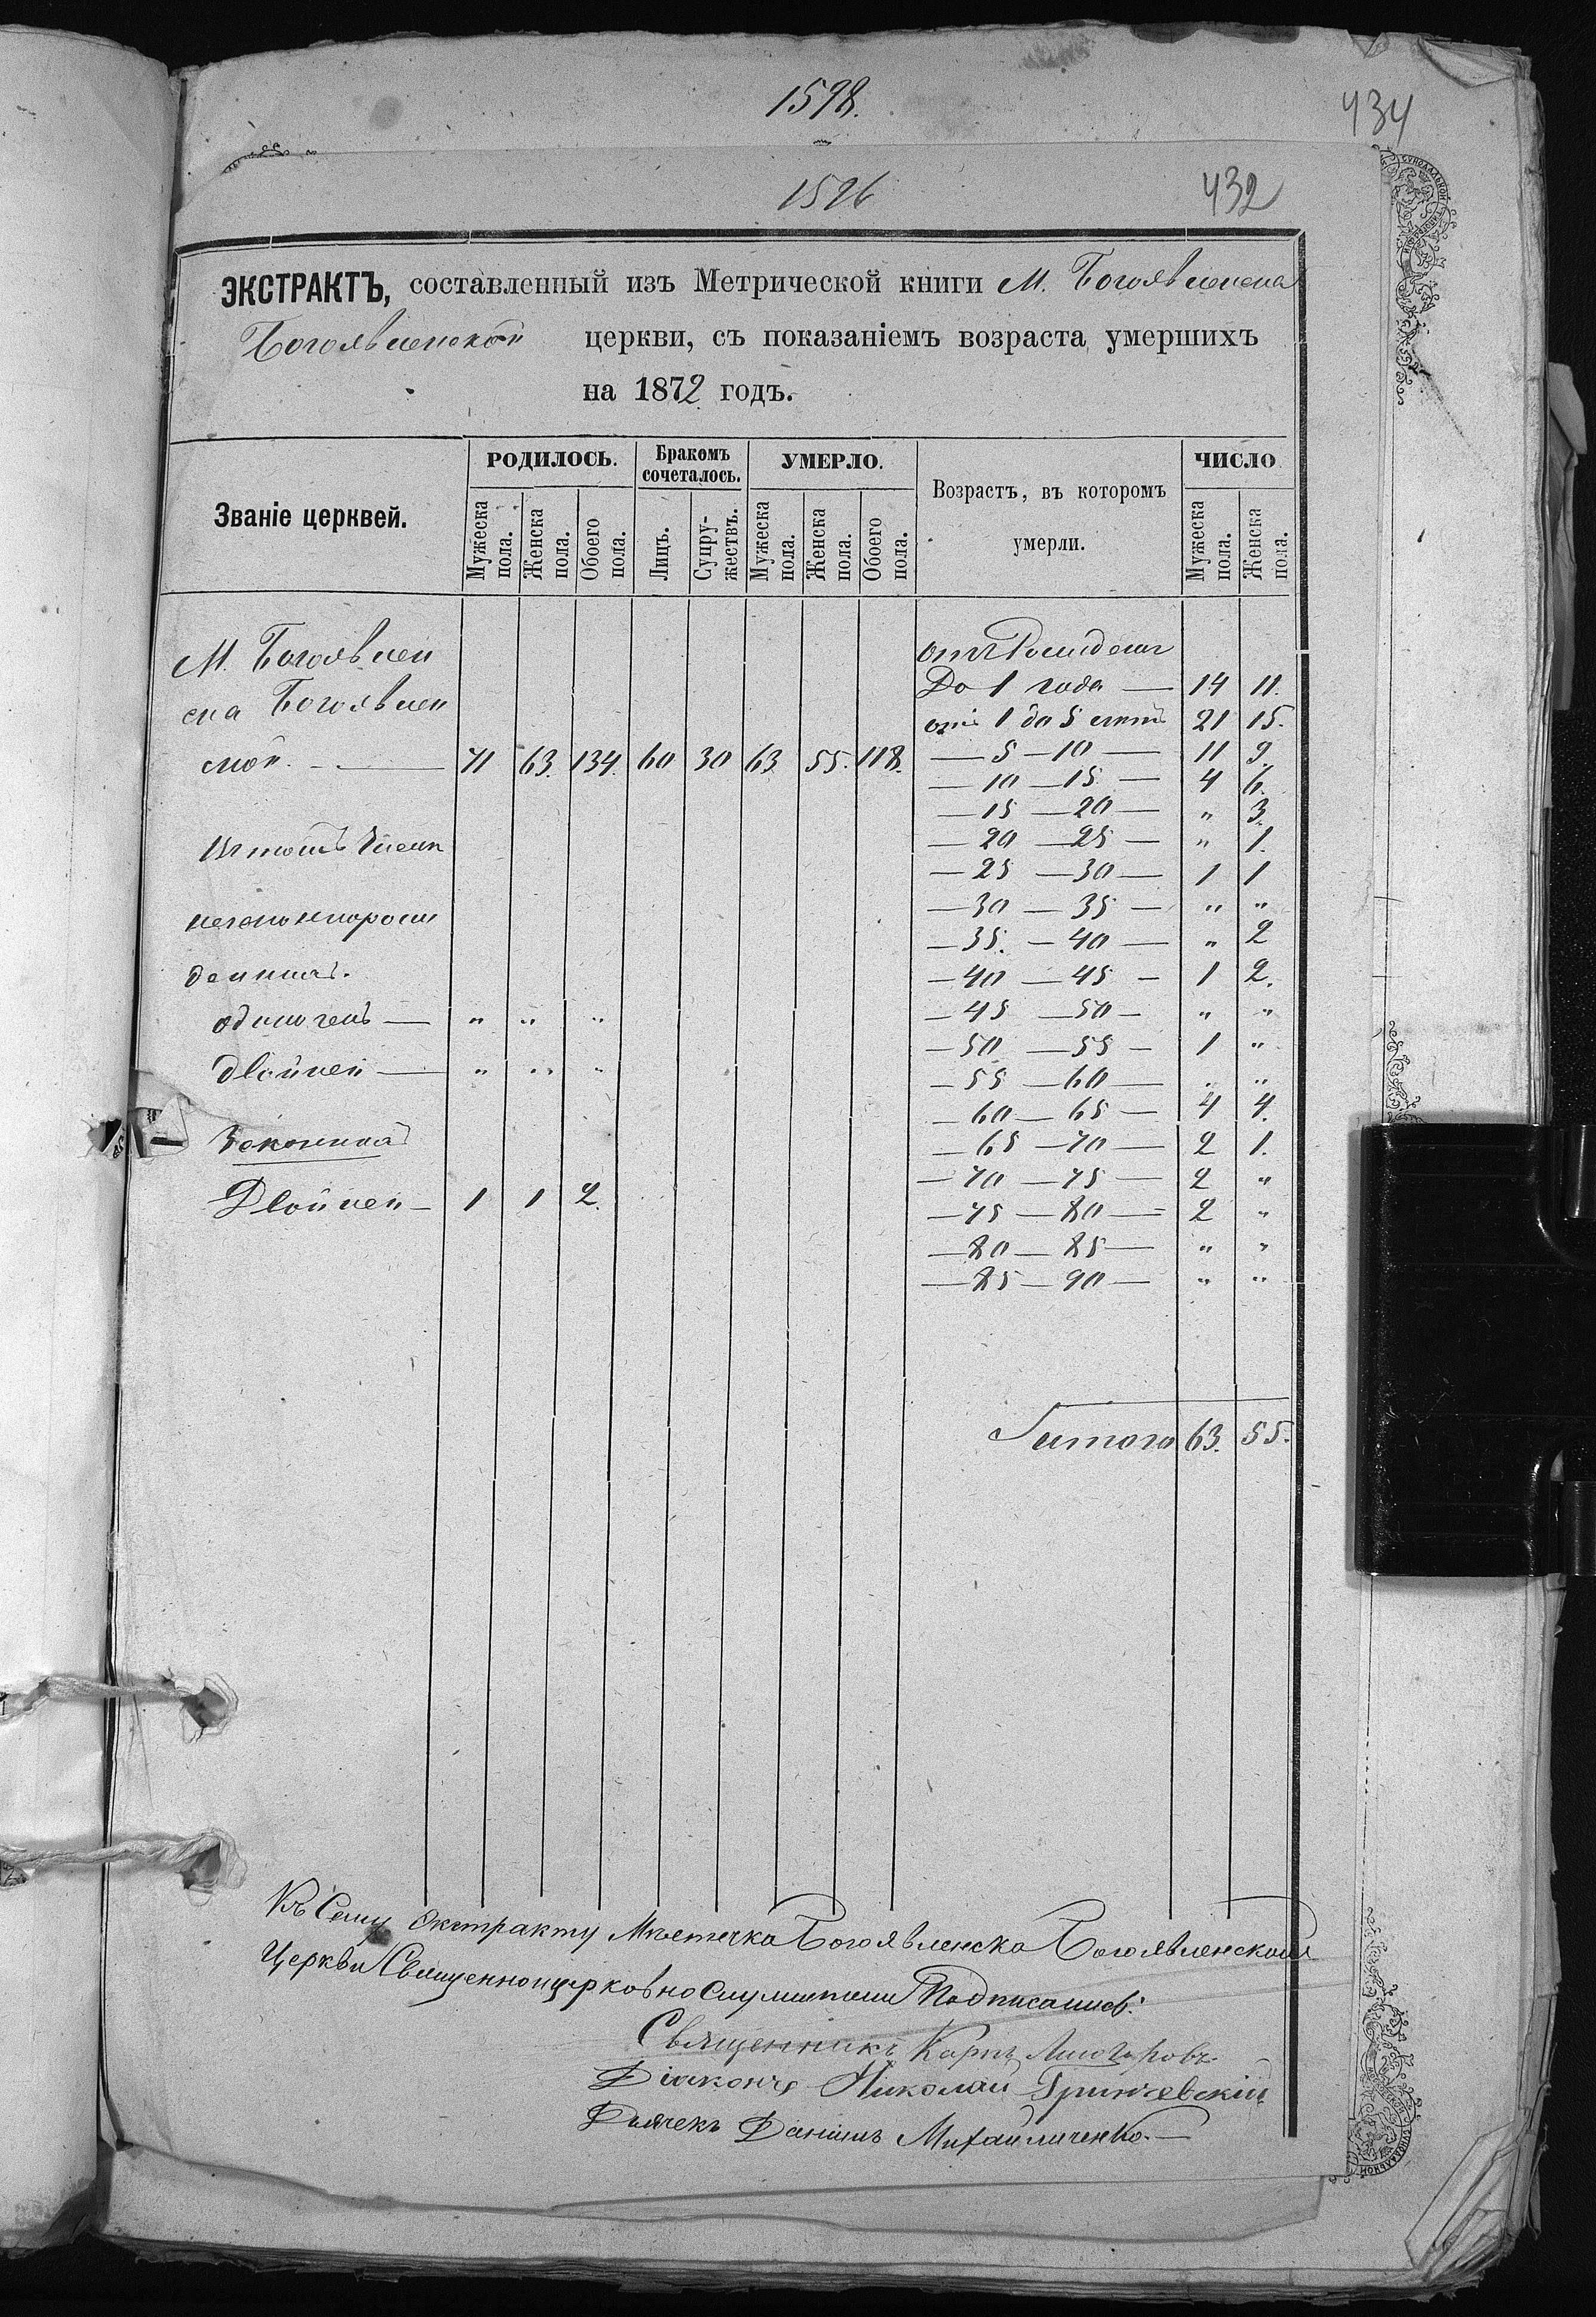 1598.
434
1596
432
ЭКСТРАКТЪ, составленный изъ Метрической книги М. Богоявленска
Богоявленской церкви, съ показаніемъ возраста умершихъ
на 1872 годъ.
Званіе церквей.
РОДИЛОСЬ.
Мужеска пола.
Женска пола.
Обоего пола.
Бракомъ сочеталось.
Лицъ.
Супружествъ.
УМЕРЛО.
Мужеска пола.
Женска пола.
Обоего пола.
Возрастъ, въ которомъ
умерли.
ЧИСЛО
Мужеска пола.
Женска пола.
М. Богоявлен
ска Богоявлен
ской. — 71 63. 134. 60 30 63 55. 118.
Въ томъ числѣ
незаконнорож
денныхъ.
одиночекъ — " " "
двойней — " " "
Законныхъ
Двойней — 1 1 2.
отъ Рожденія
До 1 года — 14 11.
отъ 1 до 5 лѣтъ 21 15.
— 5 — 10 — 11 9.
— 10 — 15 — 4 6.
— 15 — 20 — " 3.
— 20 — 25 — " 1.
— 25 — 30 — 1 1
— 30 — 35 — " "
— 35. — 40 — " 2
— 40 — 45 — 1 2.
— 45 — 50 — " "
— 50 — 55 — 1 "
— 55 — 60 — " "
— 60 — 65 — 4 4.
— 65 — 70 — 2 1.
— 70 — 75 — 2 "
— 75 — 80 — 2 "
— 80 — 85 — " "
— 85 — 90 — " "
Итого 63. 55.
Къ Сему Экстракту Мѣстечка Богоявленска Богоявленской
Церкви Священноцерковнослужители Подписались:
Священникъ Карпъ
Діаконъ Николай Гриневскій
Дьячекъ Даніилъ Михайличенко. —